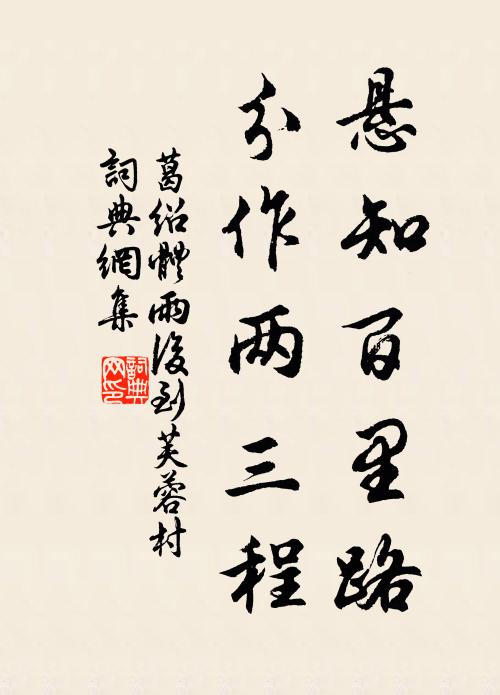 悬知百里路
分作两三程
葛绍體雨後到芙蓉村
詞典網集
詞典网印